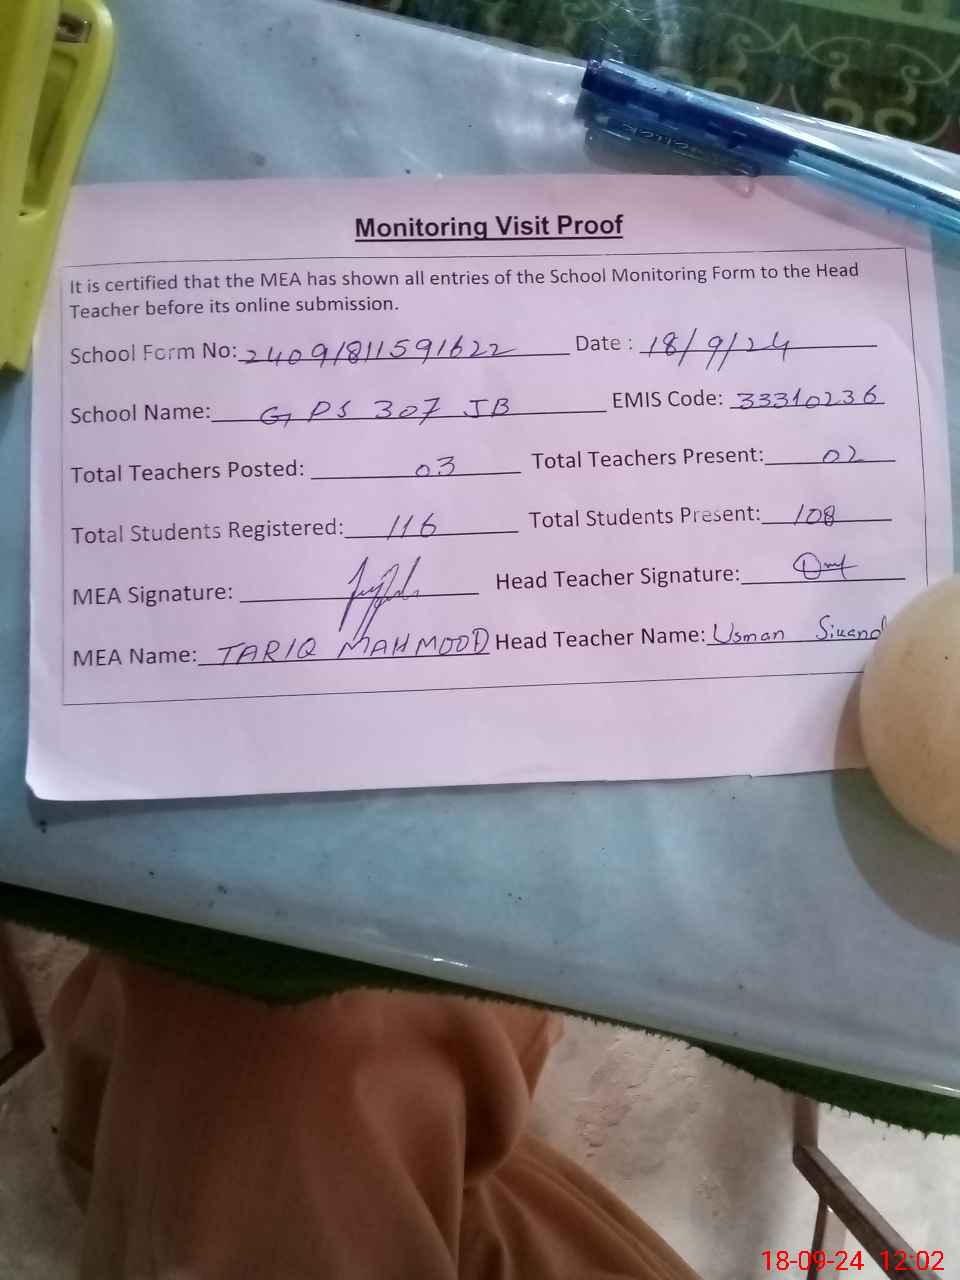 Monitoring Visit Proof
It is certified that the MEA has shown all entries of the School Monitoring Form to the Head
Teacher before its online submission.
School Form No: 24091811591622 Date : 18/9/24
School Name: GPS 307 JB EMIS Code: 33310236
Total Teachers Posted: 03 Total Teachers Present: 02
Total Students Registered: 116 Total Students Present: 108
MEA Signature: Head Teacher Signature:
MEA Name: TARIQ MAHMOOD Head Teacher Name: Usman
18-09-24 12:02